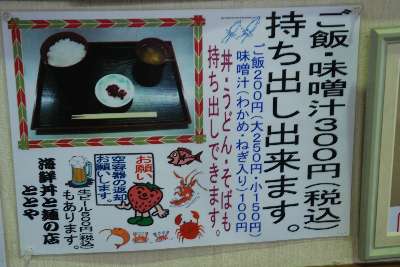 ご飯・味噌汁300円(税込)
持ち出し出来ます。
ご飯200円(大250円・小150円)
味噌汁(わかめ・ねぎ入り)100円
丼・うどん・そばも
持ち出しできます。
お願い
空容器の返却
お願いします。
生ビール500円(税込)
もあります。
海鮮丼と麺の店
ととや